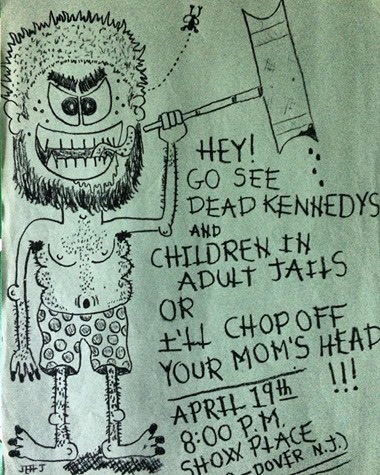 HEY!
GO SEE
DEAD KENNEDYS
AND
CHILDREN IN
ADULT JAILS
OR
I'LL CHOP OFF
YOUR MOM'S HEAD
!!!
APRIL 19th
8:00 P.M.
SHOXX PLACE
(DOVER N.J.)
JHHJ